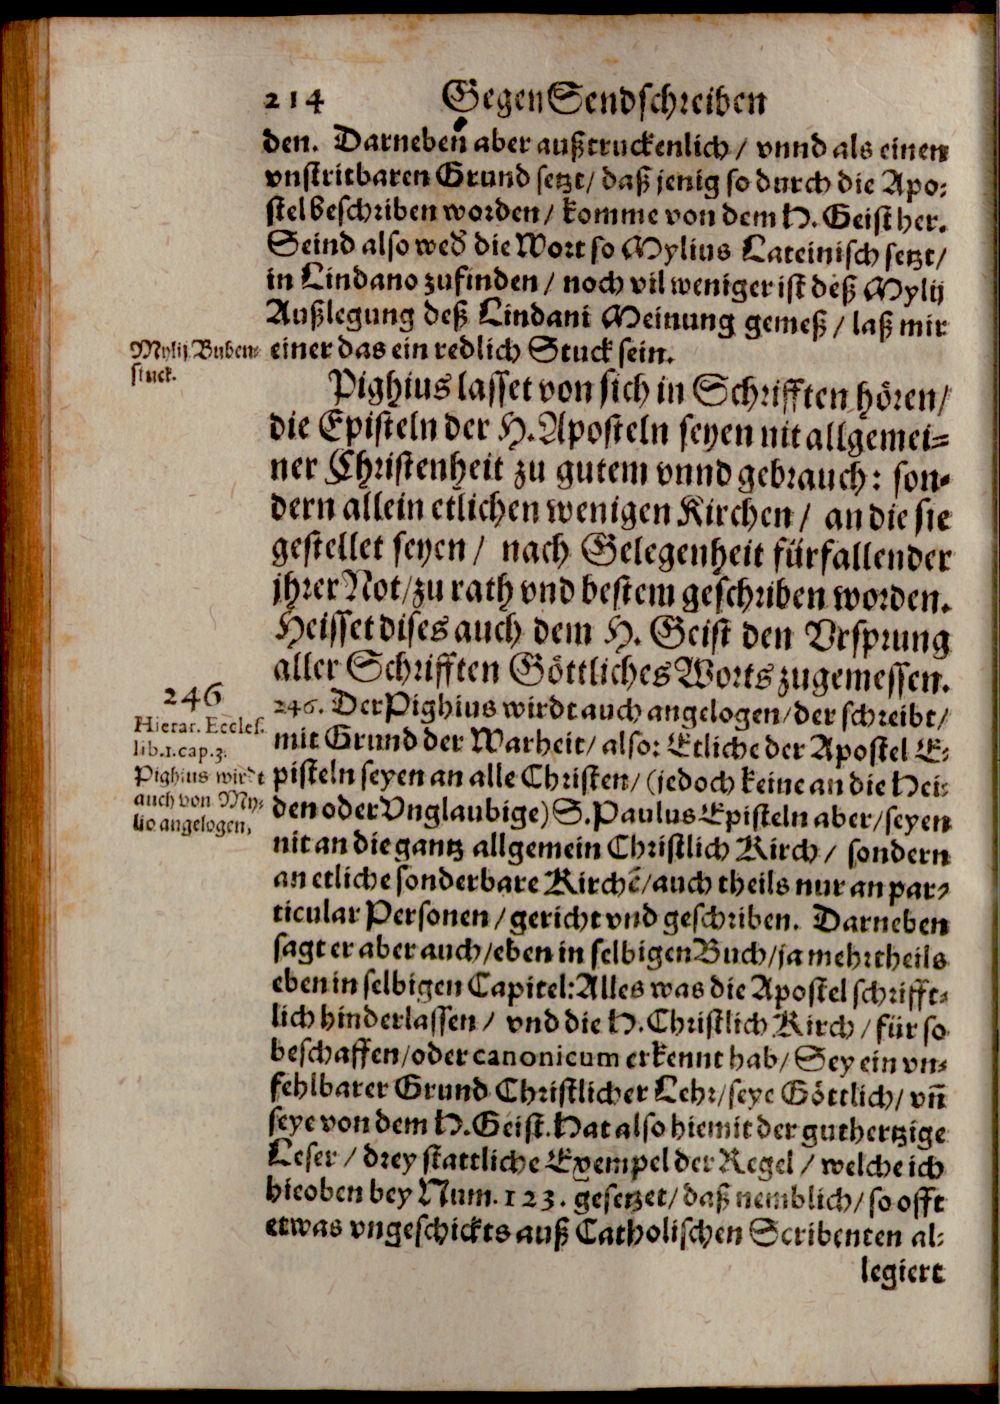 214 Gegen Sendschreiben
den. Darneben aber außtruckenlich / vnnd als einen
vnstritbaren Grund setzt / daß jenig so durch die Apo-
stel beschriben worden / komme von dem H. Geist her.
Seind also wed̃ die Wort so Mylius Lateinisch setzt /
in Lindano zufinden / noch vil weniger ist deß Mylij
Außlegung deß Lindani Meinung gemeß / laß mir
einer das ein redlich Stuck sein.
Mylij Buben-
stuck.
Pighius lasset von sich in Schrifften hören /
die Episteln der H. Aposteln seyen nit allgemei-
ner Christenheit zu gutem vnnd gebrauch: son-
dern allein etlichen wenigen Kirchen / an die sie
gestellet seyen / nach Gelegenheit fürfallender
jhrer Not / zu rath vnd bestem geschriben worden.
Heisset dises auch dem H. Geist den Vrsprung
aller Schrifften Göttliches Worts zugemessen.
246
Hierar. Eccles.
lib.1.cap.3.
Pighius wirdt
auch von My-
lio angelogen,
246. Der Pighius wirdt auch angelogen / der schreibt /
mit Grund der Warheit / also: Etliche der Apostel E-
pisteln seyen an alle Christen / (jedoch keine an die Hei-
den oder Vnglaubige) S. Paulus Episteln aber / seyen
nit an die gantz allgemein Christlich Kirch / sondern
an etliche sonderbare Kirchẽ / auch theils nur an par-
ticular Personen / gericht vnd geschriben. Darneben
sagt er aber auch / eben in selbigen Buch / ja mehrtheils
eben in selbigen Capitel: Alles was die Apostel schrifft-
lich hinderlassen / vnd die H. Christlich Kirch / für so
beschaffen / oder canonicum erkennt hab / Sey ein vn-
fehlbarer Grund Christlicher Lehr / seye Göttlich / vñ
seye von dem H. Geist. Hat also hiemit der guthertzige
Leser / drey stattliche Exempel der Regel / welche ich
hieoben bey Num. 123. gesetzet / daß nemblich / so offt
etwas vngeschickts auß Catholischen Scribenten al-
legiert